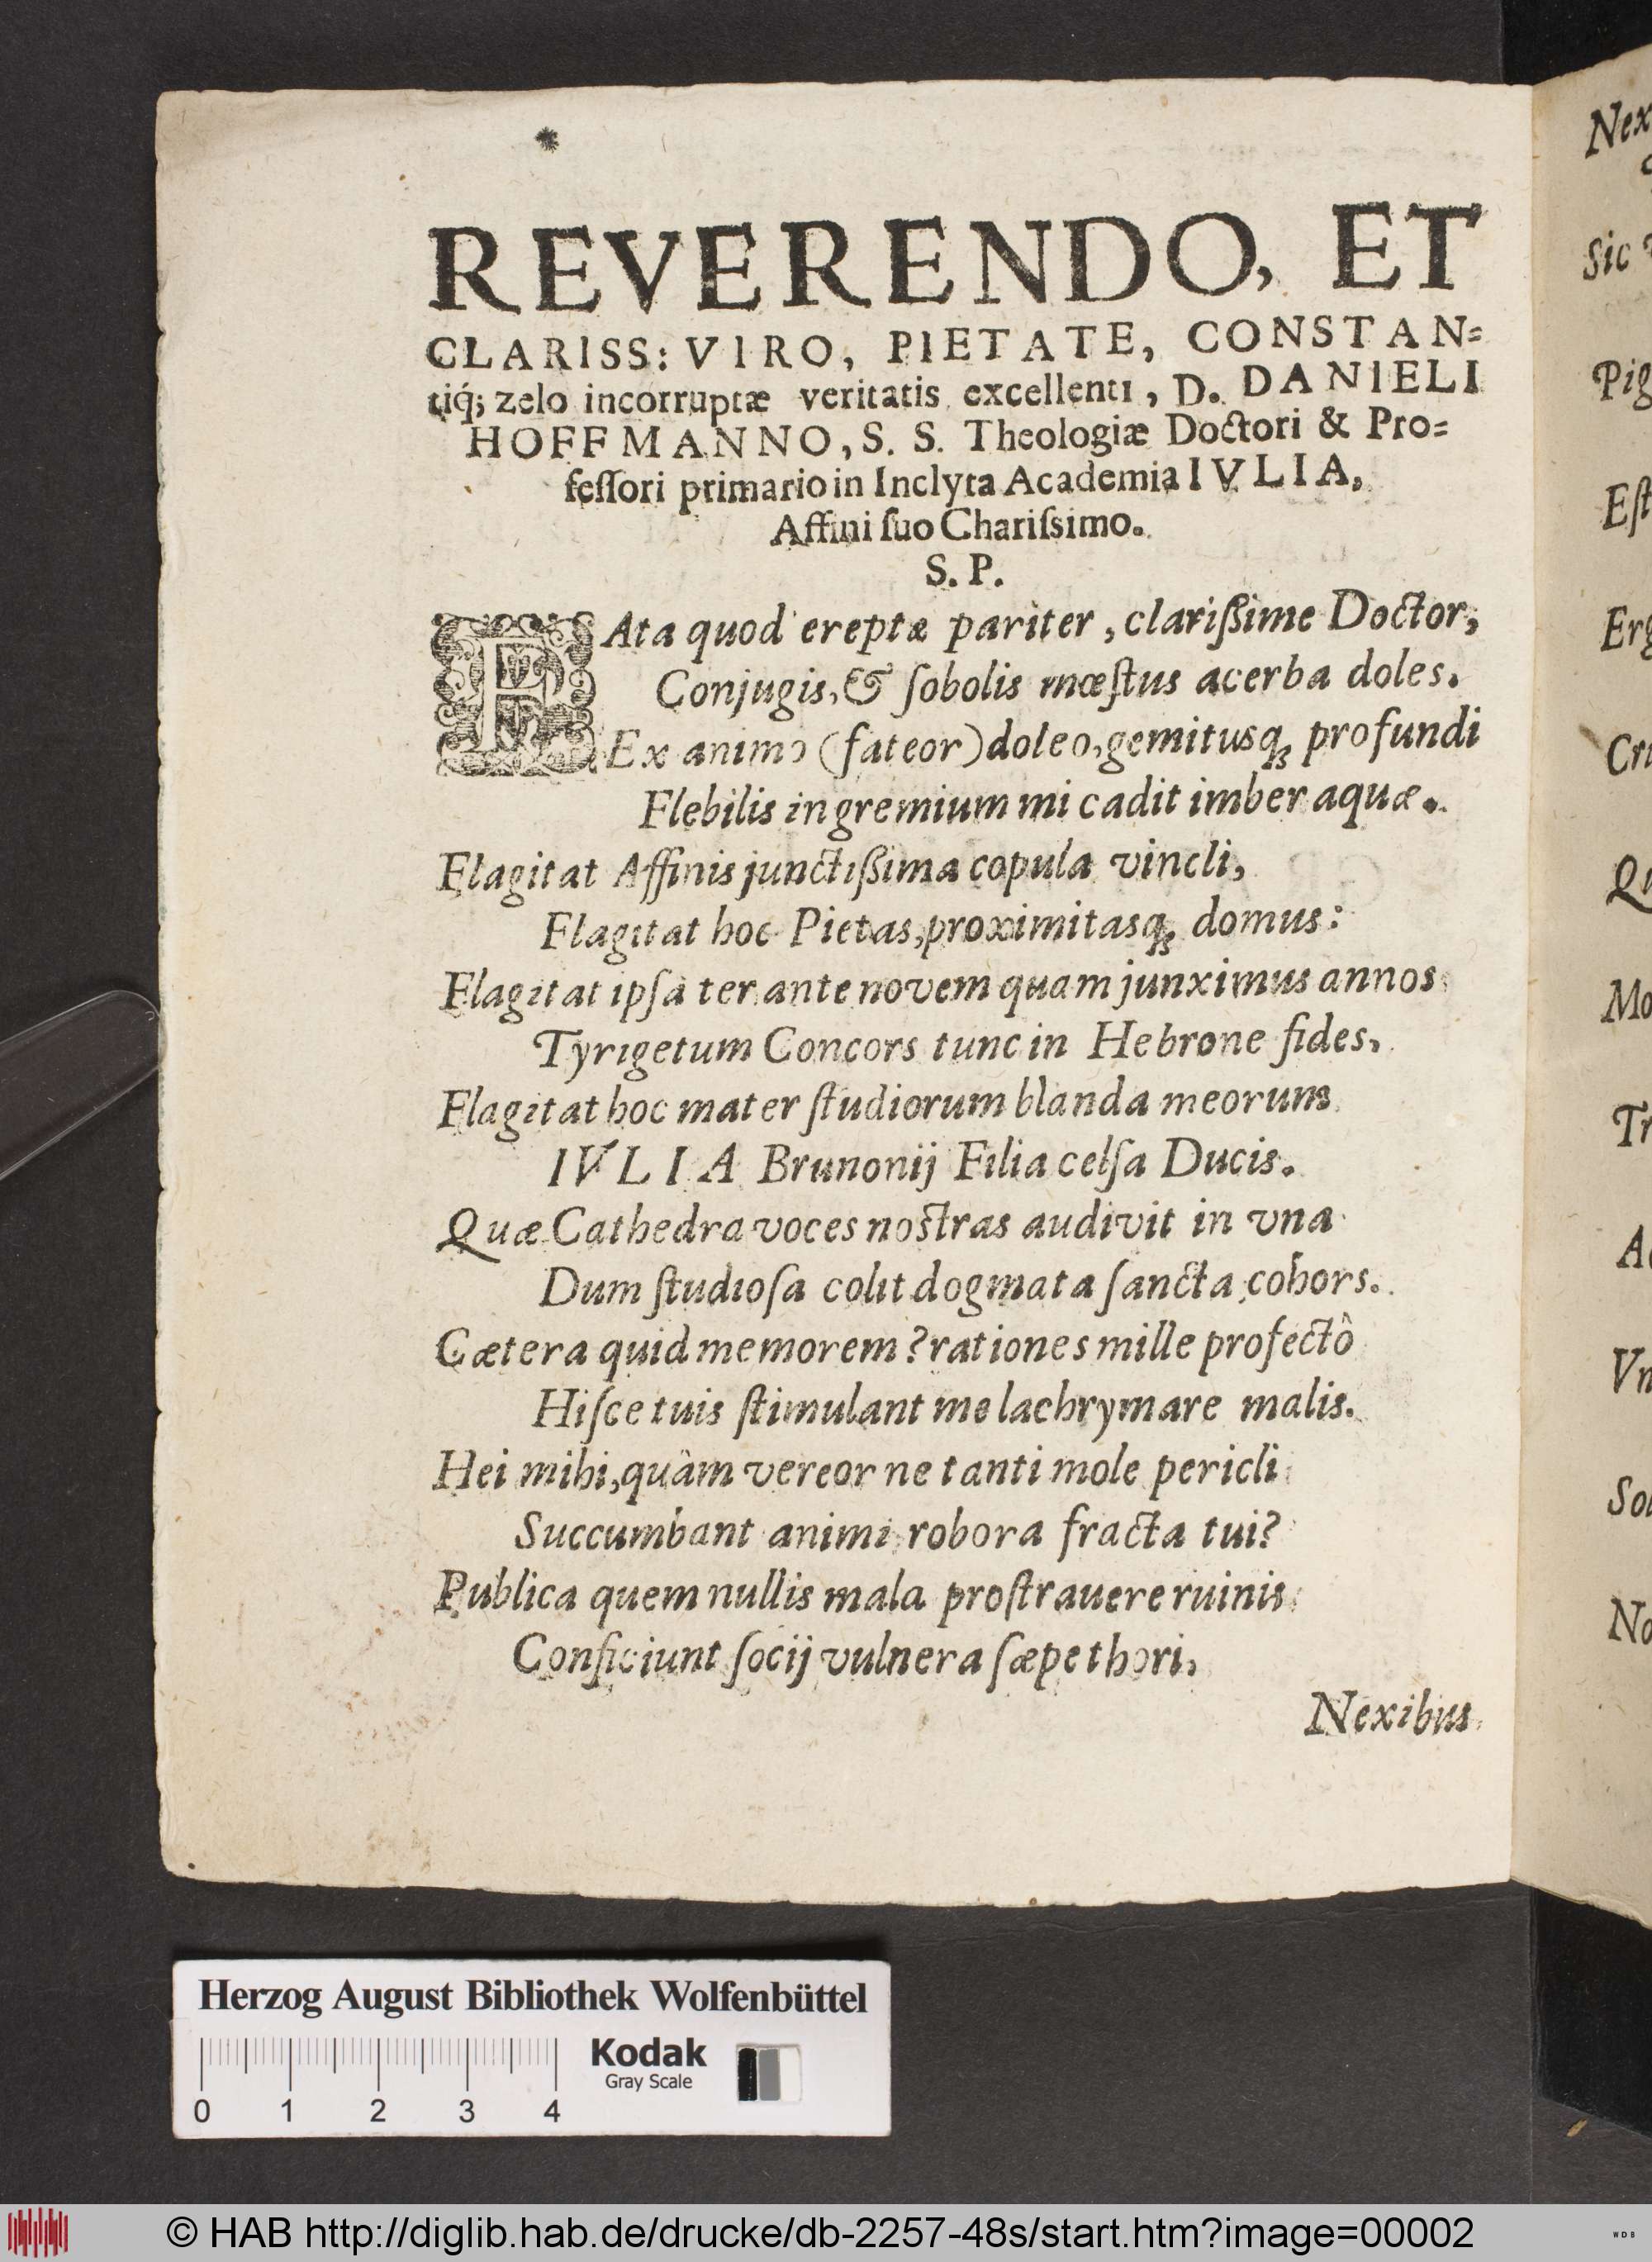 REVERENDO, ET
CLARISS: VIRO, PIETATE, CONSTAN=
tiq́; zelo incorruptæ veritatis excellenti, D. DANIELI
HOFFMANNO, S. S. Theologiæ Doctori & Pro=
feſſori primario in Inclyta Academia IVLIA,
Affini ſuo Chariſsimo.
S. P.
FAta quod ereptæ pariter, clarißime Doctor,
Conjugis, & ſobolis mœſtus acerba doles.
Ex animo (fateor) doleo, gemitusq; profundi
Flebilis in gremium mi cadit imber aquæ.
Flagitat Affinis junctißima copula vincli,
Flagitat hoc Pietas, proximitasq; domus:
Flagitat ipſa ter ante novem quam junximus annos
Tyrigetum Concors tunc in Hebrone fides,
Flagitat hoc mater ſtudiorum blanda meorum
IVLIA Brunonij Filia celſa Ducis.
Quæ Cathedra voces nostras audivit in vna
Dum ſtudioſa colit dogmata ſancta cohors.
Cætera quid memorem? rationes mille profectò
Hiſce tuis ſtimulant me lachrymare malis.
Hei mihi, quàm vereor ne tanti mole pericli
Succumbant animi robora fracta tui?
Publica quem nullis mala proſtrauere ruinis
Conficiunt ſocij vulnera ſæpe thori,
Nexibus
Nex
Sic
Pig
Eſt
Erg
Cru
Qu
Mo
Tr
Ac
Vn
Sol
No
Herzog August Bibliothek Wolfenbüttel
Kodak
Gray Scale
0 1 2 3 4
© HAB http://diglib.hab.de/drucke/db-2257-48s/start.htm?image=00002
WDB